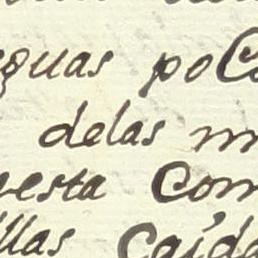 guas poca
delas m
esta com
llas caida